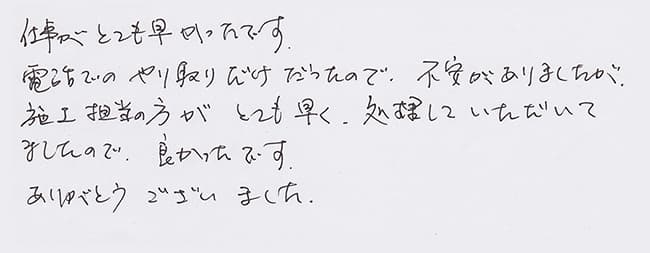 仕事がとても早かったです.
電話でのやり取りだけだったので、不安がありましたが、
施工担当の方がとても早く、処理していただいて
ましたので、良かったです.
ありがとうございました.